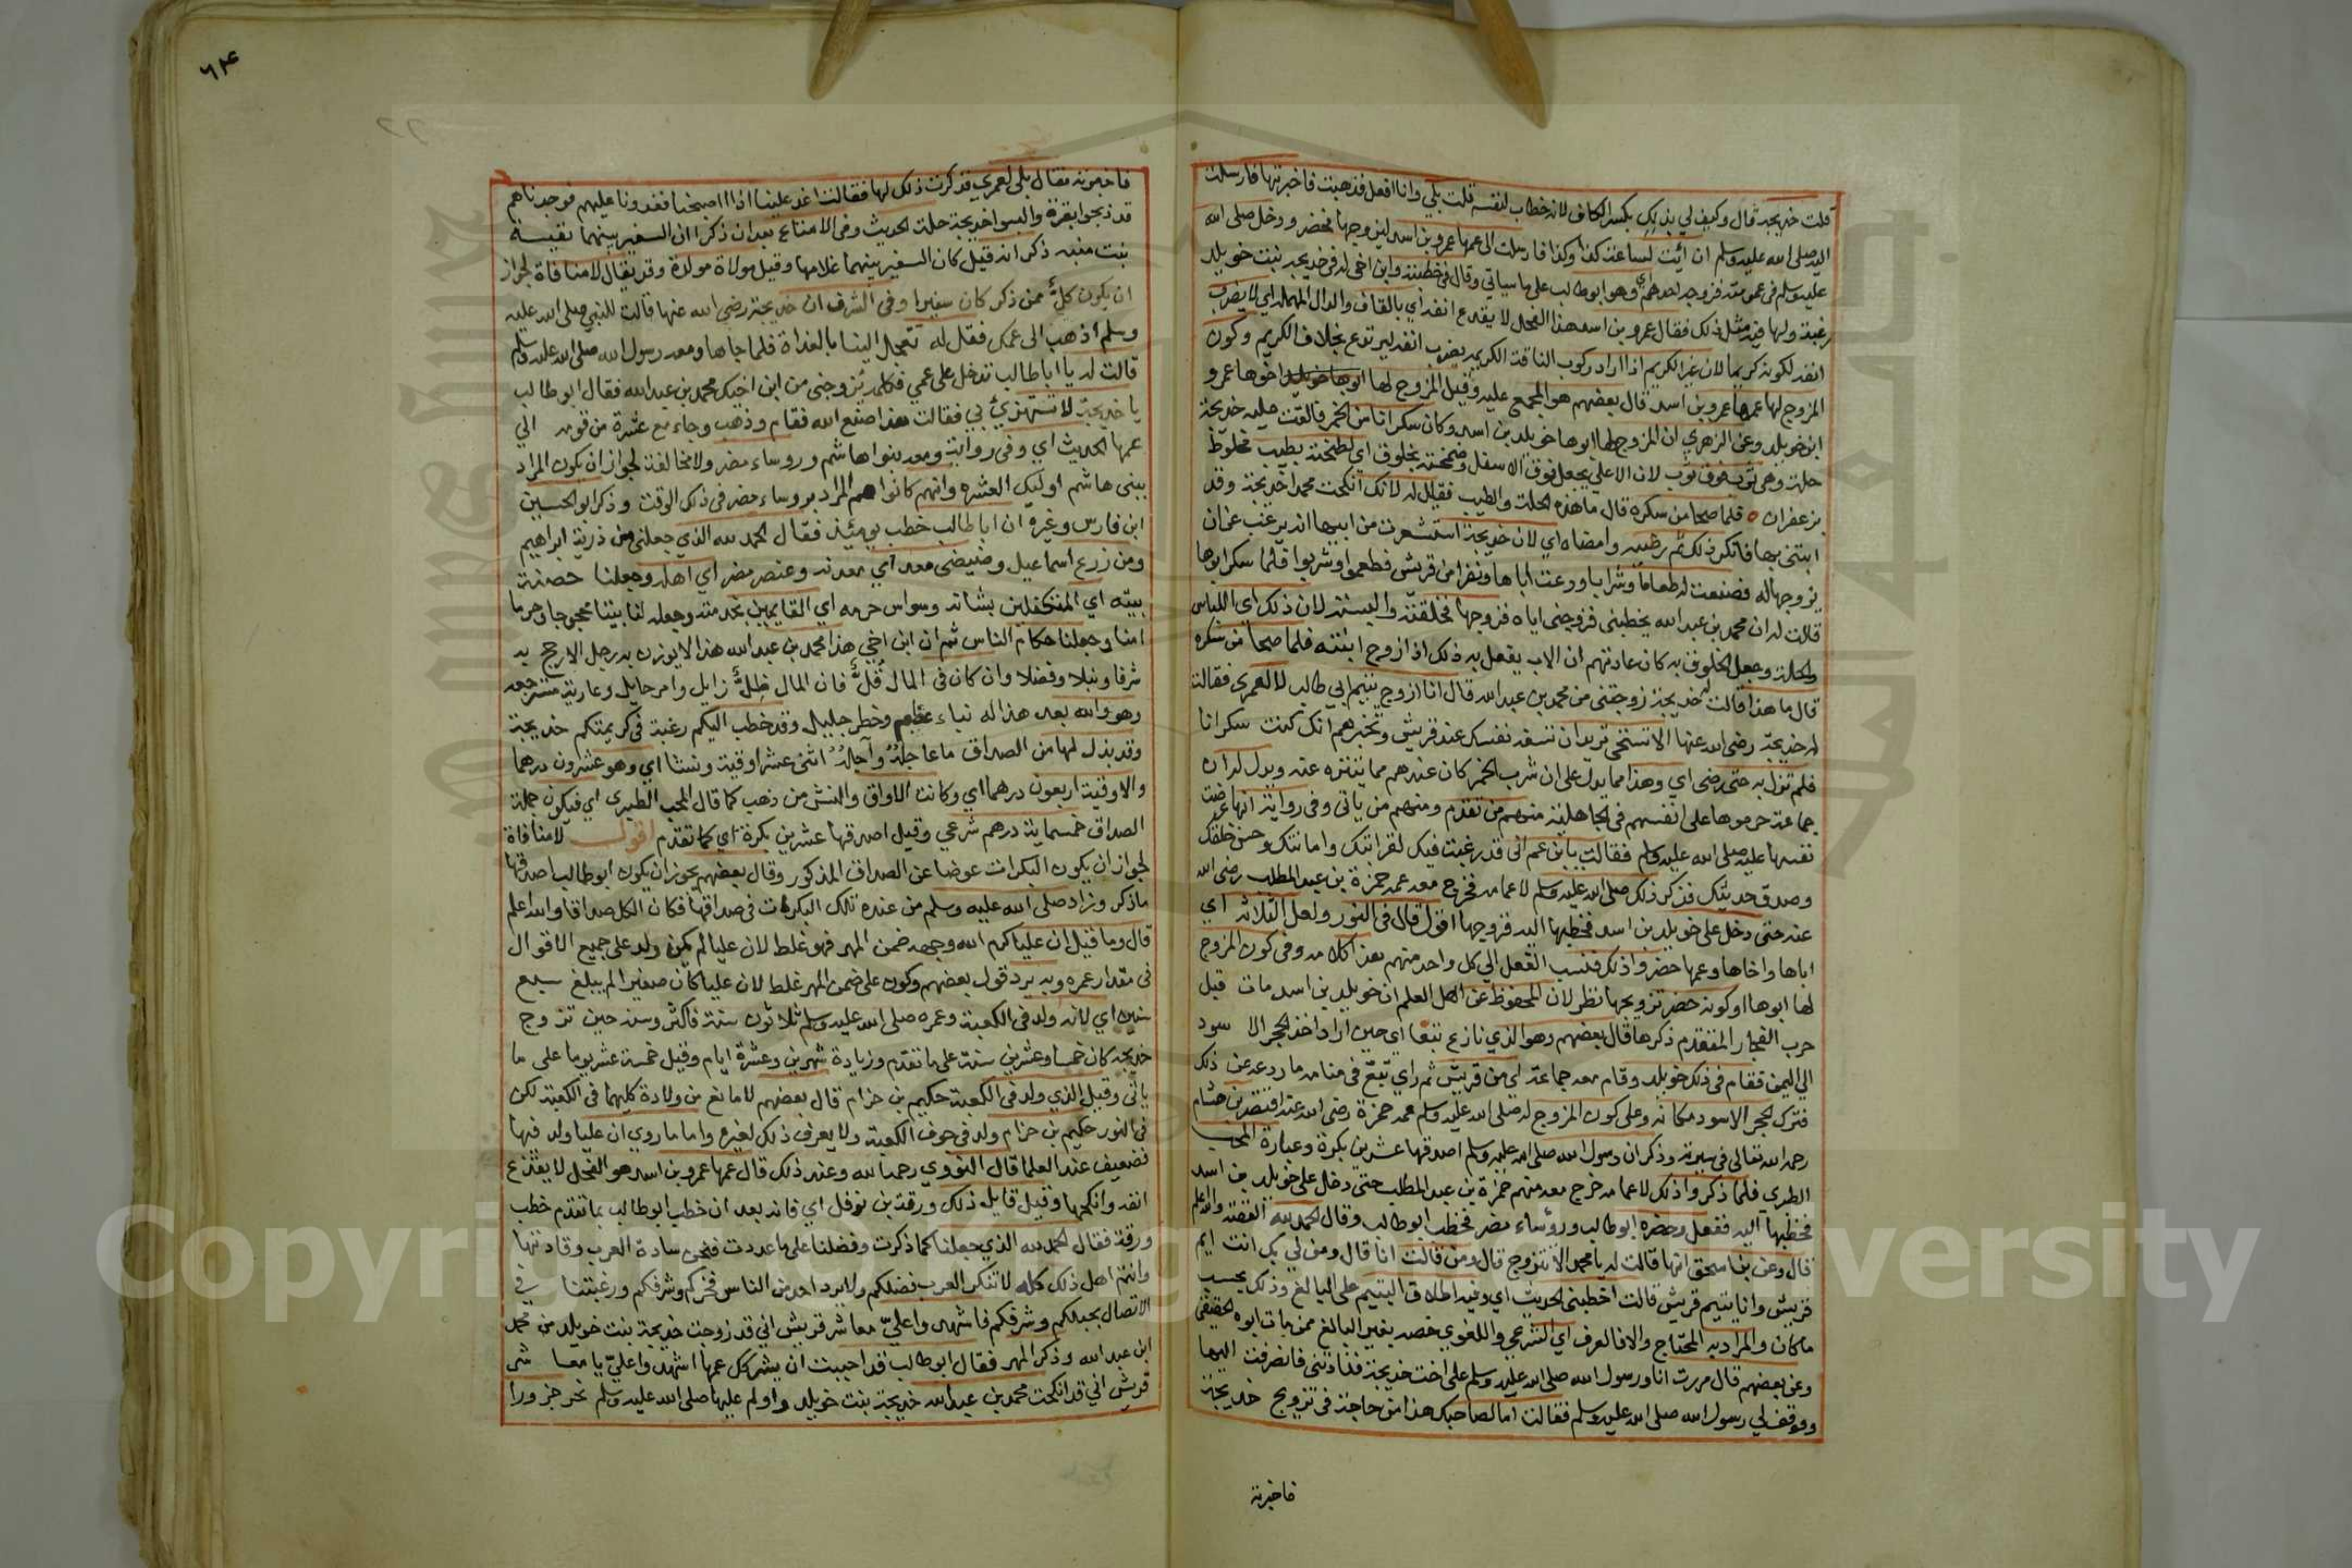 قلت خديجة قال وكيف لي بذلك بكسر الكاف لانه خطاب لنفسه قلت بلي وانا افعل فذهبت فاخبرتها فارسلت
اليه صلى الله عليه وسلم ان ائت لساعة كذا وكذا فارسلت الى عمها عمرو بن اسد ليزوجها فحضر ودخل صلى الله
عليه وسلم في عمومته فزوجه احدهم اي وهو ابو طالب على ما سياتي وقال في خطبته وابن اخي له في خديجة بنت خويلد
رغبة ولها فيه مثل ذلك فقال عمرو بن اسد هذا الفحل لا يقدع انفه اي بالقاف والدال المهملة اي لا يضرب
انفه لكونه كريما لان غير الكريم اذا اراد ركوب الناقة الكريمة يضرب انفه ليرتدع بخلاف الكريم وكون
المزوج لها عمها عمرو بن اسد قال بعضهم هو المجمع عليه وقيل المزوج لها ابوها خويلد اخوها عمرو
ابن خويلد وعن الزهري ان المزوج لها ابوها خويلد بن اسد وكان سكرانا من الخمر فالقت عليه خديجة
حلة وهي ثوب فوق ثوب لان الاعلى يجعل فوق الاسفل وضمخته بخلوق اي لطخته بطيب مخلوط
بزعفران فلما صحا من سكره قال ما هذه الحلة والطيب فقيل له لانك انكحت محمدا خديجة وقد
ابتنى بها فانكر ذلك ثم رضيه وامضاه اي لان خديجة استشعرت من ابيها انه يرغب عن ان
يزوجها له فصنعت له طعاما وشرابا ودعت اباها ونفرا من قريش فطعموا وشربوا فلما سكر ابوها
قالت له ان محمد بن عبد الله يخطبني فزوجني اياه فزوجها فخلقته والبسته لان ذلك اي الباس
الحلة وجعل الخلوق به كان عادتهم ان الاب يفعل به ذلك اذا زوج ابنته فلما صحا من سكره
قال ما هذا قالت له خديجة زوجتني من محمد بن عبد الله قال انا ازوج يتيم ابي طالب لا لعمري فقالت
له خديجة رضى الله عنها الا تستحي تريد ان تسفه نفسك عند قريش وتخبرهم انك كنت سكرانا
فلم تزل به حتى رضى اي وهذا مما يدل على ان شرب الخمر كان عندهم مما يتنزه عنه ويدل له ان
جماعة حرموها على انفسهم في الجاهلية منهم من تقدم ومنهم من ياتي وفي رواية انها عرضت
نفسها عليه صلى الله عليه وسلم فقالت يا بن عم اني قد رغبت فيك لقرابتك وامانتك وحسن خلقك
وصدق حديثك فذكر ذلك صلى الله عليه وسلم لاعمامه فخرج معه عمه حمزة بن عبد المطلب رضى الله
عنه حتى دخل على خويلد بن اسد فخطبها اليه فزوجها اقول قال في النور ولعل الثلاثة اي
اباها واخاها وعمها حضروا ذلك فنسب الفعل الي كل واحد منهم هذا كلامه وفي كون المزوج
لها ابوها او كونه حضر تزويجها نظر لان المحفوظ عن اهل العلم ان خويلد بن اسد مات قبل
حرب الفجار المتقدم ذكرها قال بعضهم وهو الذي نازع تبعا اي حين اراد اخذ الحجر الاسود
الي اليمن فقام في ذلك خويلد وقام معه جماعة اي من قريش ثم راي تبع في منامه ما ردعه عن ذلك
فترك الحجر الاسود مكانه وعلى كون المزوج له صلى الله عليه وسلم عمه حمزة رضى الله عنه اقتصر بن هشام
رحمه الله تعالى في سيرته وذكر ان رسول الله صلى الله عليه وسلم اصدقها عشرين بكرة وعبارة المحب
الطبري فلما ذكروا ذلك لاعمامه خرج معه منهم حمزة بن عبد المطلب حتى دخل على خويلد بن اسد
فخطبها اليه ففعل وحضره ابو طالب ورؤساء مضر فخطب ابو طالب وقال الحمد لله القصة والله اعلم
قال وعن بن اسحق انها قالت له يا محمد الا تتزوج قال ومن قالت انا قال ومن لي بك انت ايم
قريش وانا يتيم قريش قالت اخطبني الحديث اي وفيه اطلاق اليتيم على البالغ وذلك بحسب
ما كان والمراد به المحتاج والا فالعرف اي الشرعي واللغوي خصه بغير البالغ ممن مات ابوه الحقيقي
وعن بعضهم قال مررت انا ورسول الله صلى الله عليه وسلم على اخت خديجة فنادتني فانصرفت اليها
ووقف لي رسول الله صلى الله عليه وسلم فقالت اما لصاحبك هذا من حاجة في تزويج خديجة
فاخبرته
٦٤
فاخبرته فقال بلى لعمري فذكرت ذلك لها فقالت اغد علينا اذا اصبحنا فغدونا عليهم فوجدناهم
قد ذبحوا بقرة والبسوا خديجة حلة الحديث وفي الامتاع بعد ان ذكر ان السفير بينهما نفيسة
بنت منيه ذكر انه قيل كان السفير بينهما غلامها وقيل مولاة مولدة وقد يقال لا منافاة لجواز
ان يكون كل ممن ذكر كان سفيرا وفي الشرف ان خديجة رضي الله عنها قالت للنبي صلى الله عليه
وسلم اذهب الى عمك فقل له تعجل الينا بالغداة فلما جاها ومعه رسول الله صلى الله عليه وسلم
قالت له يا ابا طالب تدخل على عمي فكلمه يزوجني من ابن اخيك محمد بن عبد الله فقال ابو طالب
يا خديجة لا تستهزئي بي فقالت هذا صنع الله فقام وذهب وجاء مع عشرة من قومه الي
عمها الحديث اي وفي رواية ومعه بنوا هاشم وروساء مضر ولا مخالفة لجواز ان يكون المراد
ببني هاشم اوليك العشرة وانهم كانوا هم المراد بروساء مضر في ذلك الوقت وذكر ابو الحسين
ابن فارس وغيره ان ابا طالب خطب يومئذ فقال الحمد لله الذي جعلنا من ذرية ابراهيم
ومن زرع اسماعيل وضيضي معد اي معدنه وعنصر مضر اي اهله وجعلنا حضنة
بيته اي المتكفلين بشانه وسواس حرمه اي القايمين بخدمته وجعله لنا بيتا محجوجا وحرما
امنا وجعلنا حكام الناس ثم ان ابن اخي هذا محمد بن عبد الله هذا لا يوزن به رجل الا رجح به
شرفا ونبلا وفضلا وان كان في المال قل فان المال ظل زايل وامر حايل وعارية مسترجعه
وهو والله بعد هذا له نباء عظيم وخطر جليل وقد خطب اليكم رغبة في كريمتكم خديجة
وقد بذل لها من الصداق ما عاجله وآجله اثنى عشر اوقية ونشا اي وهو عشرون درهما
والاوقية اربعون درهما اي وكانت الاواق والنش من ذهب كما قال المحب الطبري اي فيكون جملة
الصداق خمسماية درهم شرعي وقيل اصدقها عشرين بكرة اي كما تقدم اقول لا منافاة
لجواز ان يكون البكرات عوضا عن الصداق المذكور وقال بعضهم يجوز ان يكون ابو طالب اصدقها
ما ذكر وزاد صلى الله عليه وسلم من عنده تلك البكرات في صداقها فكان الكل صداقا والله اعلم
قال وما قيل ان عليا كرم الله وجهه ضمن المهر فهو غلط لان عليا لم يكن ولد على جميع الاقوال
في مقدار عمره وبه يرد قول بعضهم وكون علي ضمن المهر غلط لان عليا كان صغيرا لم يبلغ سبع
سنين اي لانه ولد في الكعبة وعمره صلى الله عليه وسلم ثلاثون سنة فاكثر وسنه حين تزوج
خديجة كان خمسا وعشرين سنة على ما تقدم وزيادة شهرين وعشرة ايام وقيل خمسة عشر يوما على ما
ياتي وقيل الذي ولد في الكعبة حكيم بن حزام قال بعضهم لا مانع من ولادة كليهما في الكعبة لكن
في النور حكيم بن حزام ولد في جوف الكعبة ولا يعرف ذلك لغيره واما ما روي ان عليا ولد فيها
فضعيف عند العلما قال النووي رحمه الله وعند ذلك قال عمها عمرو بن اسد هو الفحل لا يقذع
انفه وانكحها وقيل قايل ذلك ورقة بن نوفل اي فانه بعد ان خطب ابو طالب بما تقدم خطب
ورقة فقال الحمد لله الذي جعلنا كما ذكرت وفضلنا على ما عددت فنحن سادة العرب وقادتها
وانتم اهل ذلك كله لا تنكر العرب فضلكم ولا يرد احد من الناس فخركم وشرفكم ورغبتنا في
الاتصال بحبلكم وشرفكم فاشهدوا علي معاشر قريش اني قد زوجت خديجة بنت خويلد من محمد
ابن عبد الله وذكر المهر فقال ابو طالب قد احببت ان يشركك عمها اشهدوا علي يا معاشر
قريش اني قد انكحت محمد بن عبد الله خديجة بنت خويلد واولم عليها صلى الله عليه وسلم نحر جزورا